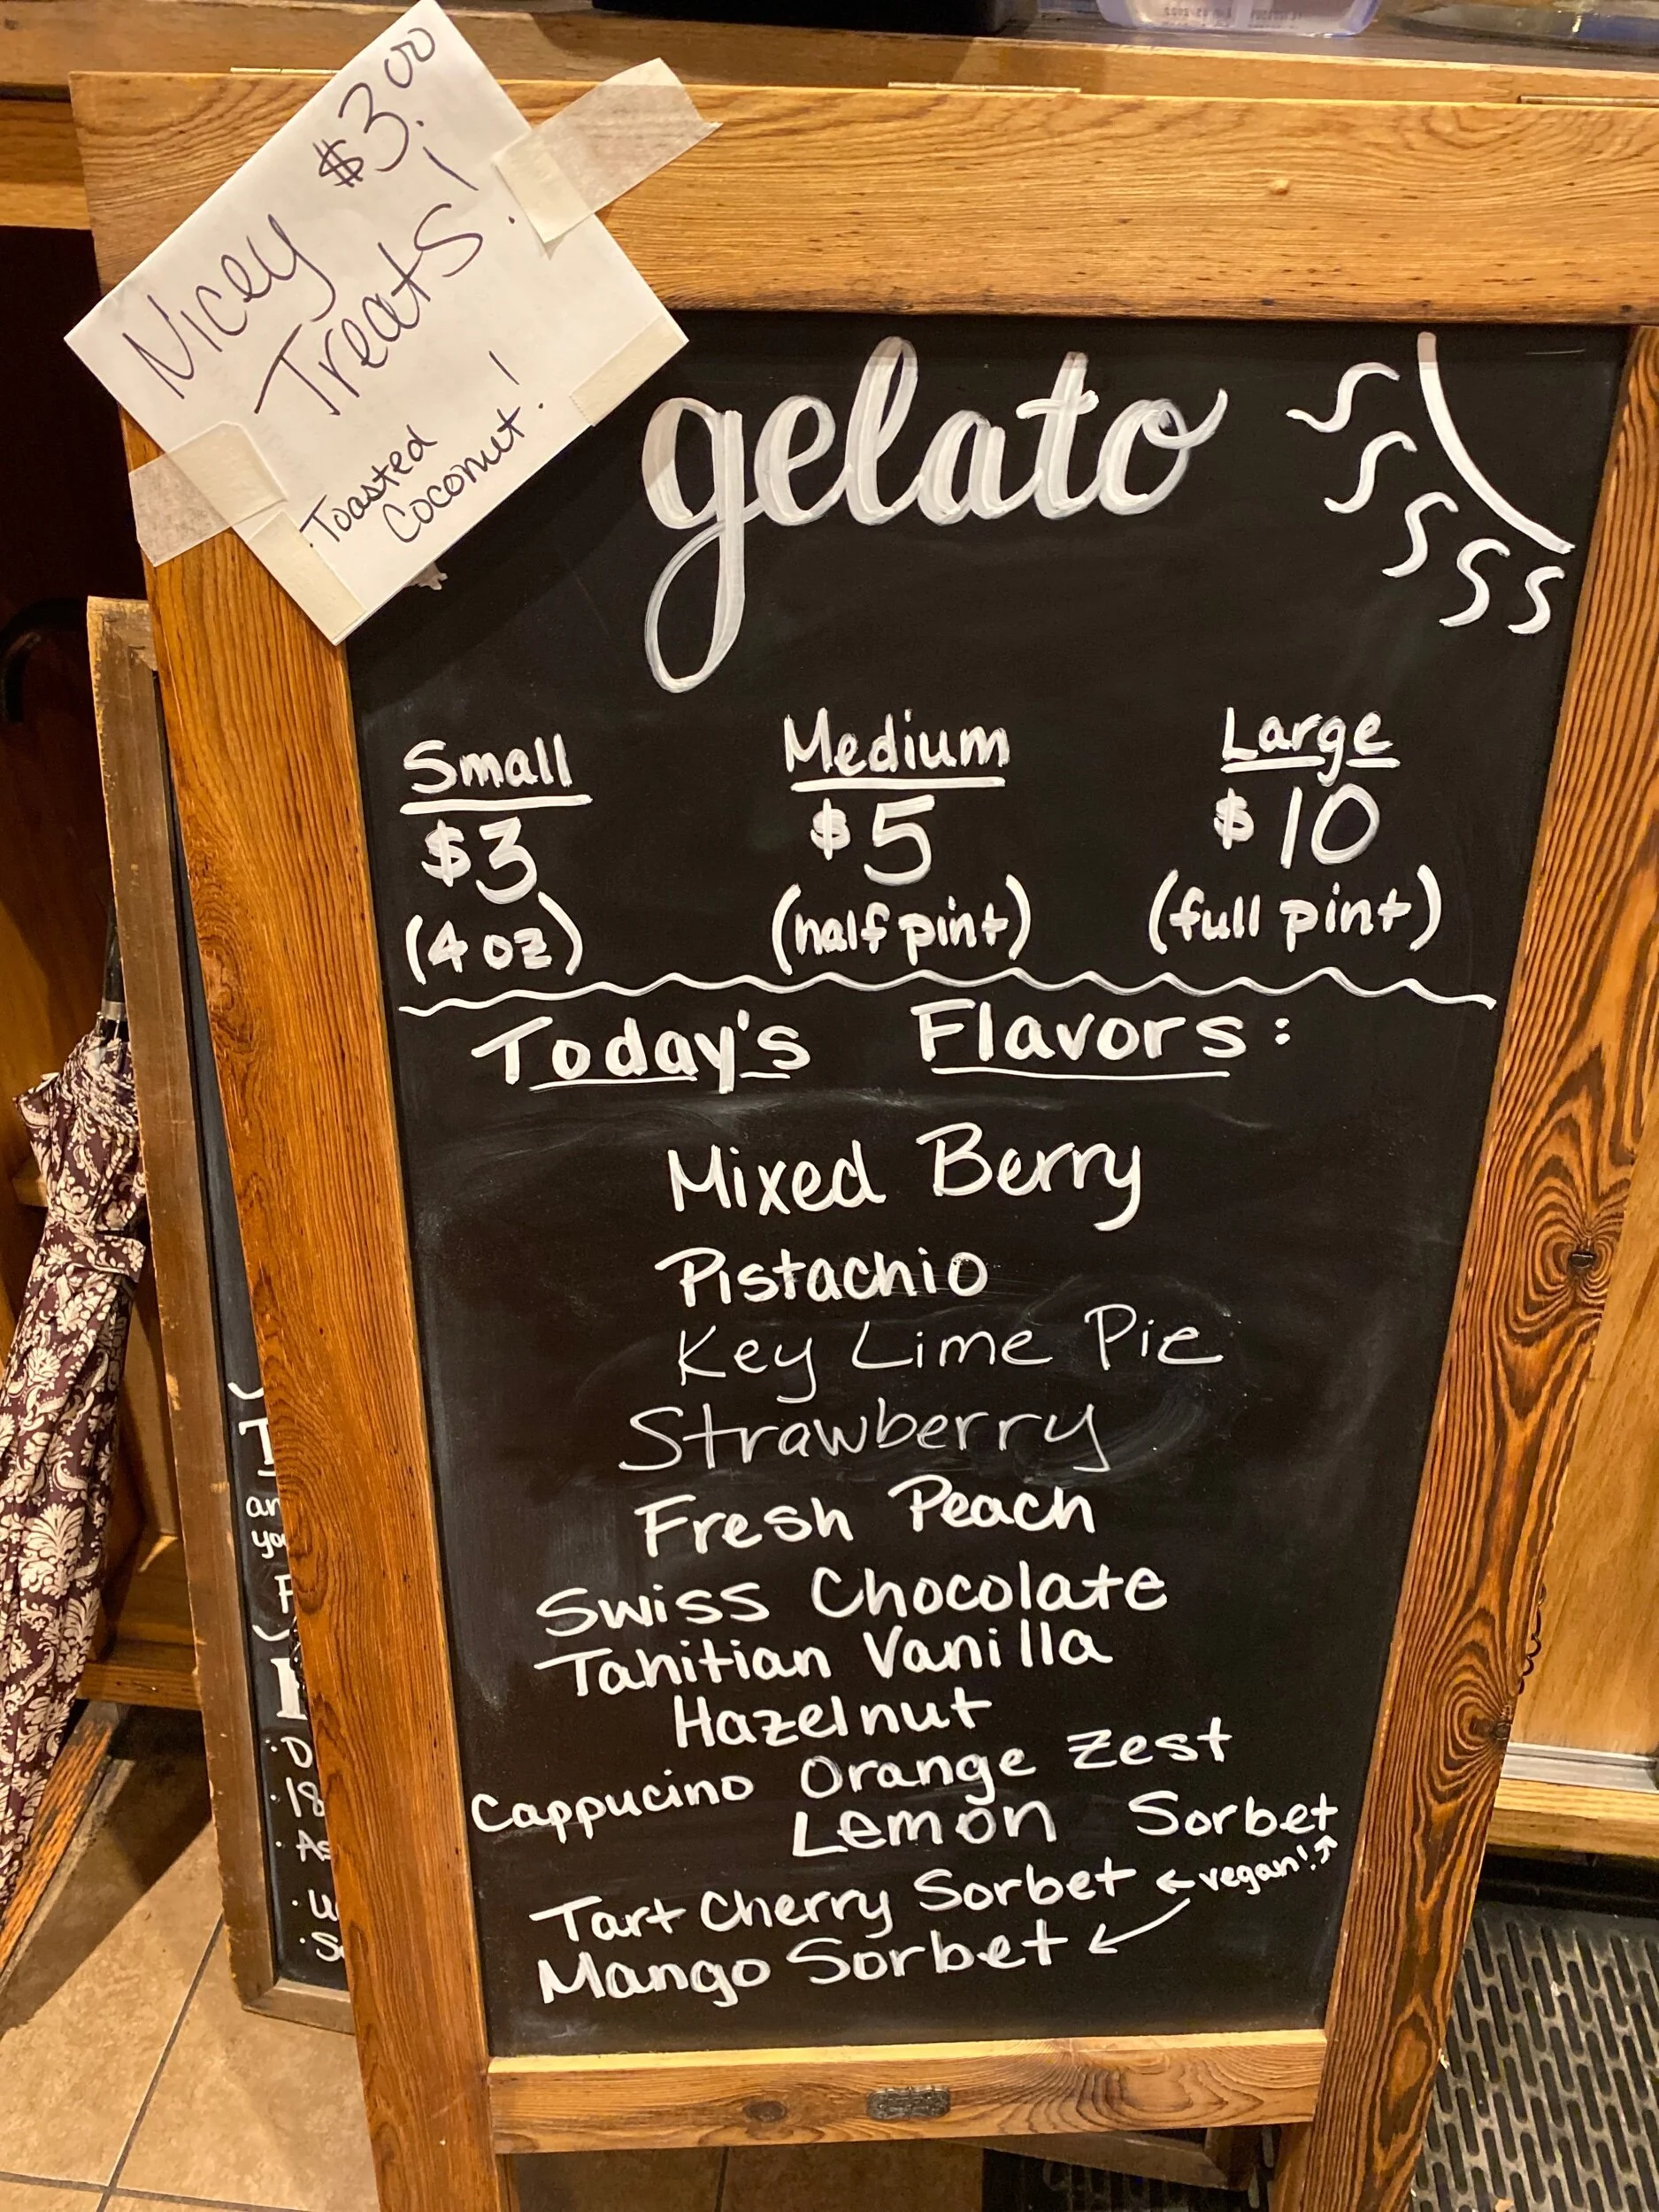 Nicey $3.00
Treats!
Toasted
Coconut!
gelato
Small Medium Large
$3 $5 $10
(4 oz) (half pint) (full pint)
Today's Flavors:
Mixed Berry
Pistachio
Key Lime Pie
Strawberry
Fresh Peach
Swiss Chocolate
Tahitian Vanilla
Hazelnut
Cappucino Orange Zest
Lemon Sorbet
Tart Cherry Sorbet ←vegan!↑
Mango Sorbet ↙